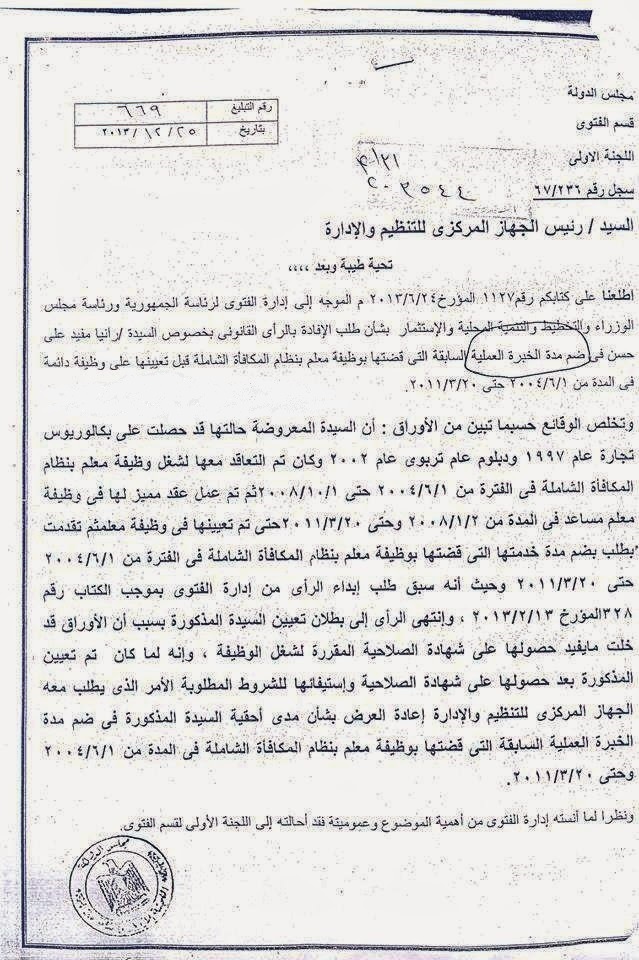 مجلس الدولة
قسم الفتوى
اللجنة الاولى
سجل رقم ٦٧/٢٣٦
رقم التبليغ ٦٦٩
بتاريخ ٢٠١٣/١٢/٢٥
٢٠٣٥٤٤
السيد / رئيس الجهاز المركزى للتنظيم والإدارة
تحية طيبة وبعد ،،،،
اطلعنا على كتابكم رقم ١١٢٧ المؤرخ ٢٠١٣/٦/٢٤ م الموجه إلى إدارة الفتوى لرئاسة الجمهورية ورئاسة مجلس
الوزراء والتخطيط والتنمية المحلية والإستثمار بشأن طلب الإفادة بالرأى القانونى بخصوص السيدة /رانيا مفيد على
حسن فى ضم مدة الخبرة العملية السابقة التى قضتها بوظيفة معلم بنظام المكافأة الشاملة قبل تعيينها على وظيفة دائمة
فى المدة من ٢٠٠٤/٦/١ حتى ٢٠١١/٣/٢٠.
وتخلص الوقائع حسبما تبين من الأوراق : أن السيدة المعروضة حالتها قد حصلت على بكالوريوس
تجارة عام ١٩٩٧ ودبلوم عام تربوى عام ٢٠٠٢ وكان تم التعاقد معها لشغل وظيفة معلم بنظام
المكافأة الشاملة فى الفترة من ٢٠٠٤/٦/١ حتى ٢٠٠٨/١٠/١ثم تم عمل عقد مميز لها فى وظيفة
معلم مساعد فى المدة من ٢٠٠٨/١/٢ وحتى ٢٠١١/٣/٢٠حتى تم تعيينها فى وظيفة معلمثم تقدمت
بطلب بضم مدة خدمتها التى قضتها بوظيفة معلم بنظام المكافأة الشاملة فى الفترة من ٢٠٠٤/٦/١
حتى ٢٠١١/٣/٢٠ وحيث أنه سبق طلب إبداء الرأى من إدارة الفتوى بموجب الكتاب رقم
٣٢٨المؤرخ ٢٠١٣/٢/١٣ ، وإنتهى الرأى إلى بطلان تعيين السيدة المذكورة بسبب أن الأوراق قد
خلت مايفيد حصولها على شهادة الصلاحية المقررة لشغل الوظيفة ، وإنه لما كان تم تعيين
المذكورة بعد حصولها على شهادة الصلاحية وإستيفائها للشروط المطلوبة الأمر الذى يطلب معه
الجهاز المركزى للتنظيم والإدارة إعادة العرض بشأن مدى أحقية السيدة المذكورة فى ضم مدة
الخبرة العملية السابقة التى قضتها بوظيفة معلم بنظام المكافأة الشاملة فى المدة من ٢٠٠٤/٦/١
وحتى ٢٠١١/٣/٢٠.
ونظرا لما آنسته إدارة الفتوى من أهمية الموضوع وعموميتة فقد أحالته إلى اللجنة الأولى لقسم الفتوى.
مجلس الدولة